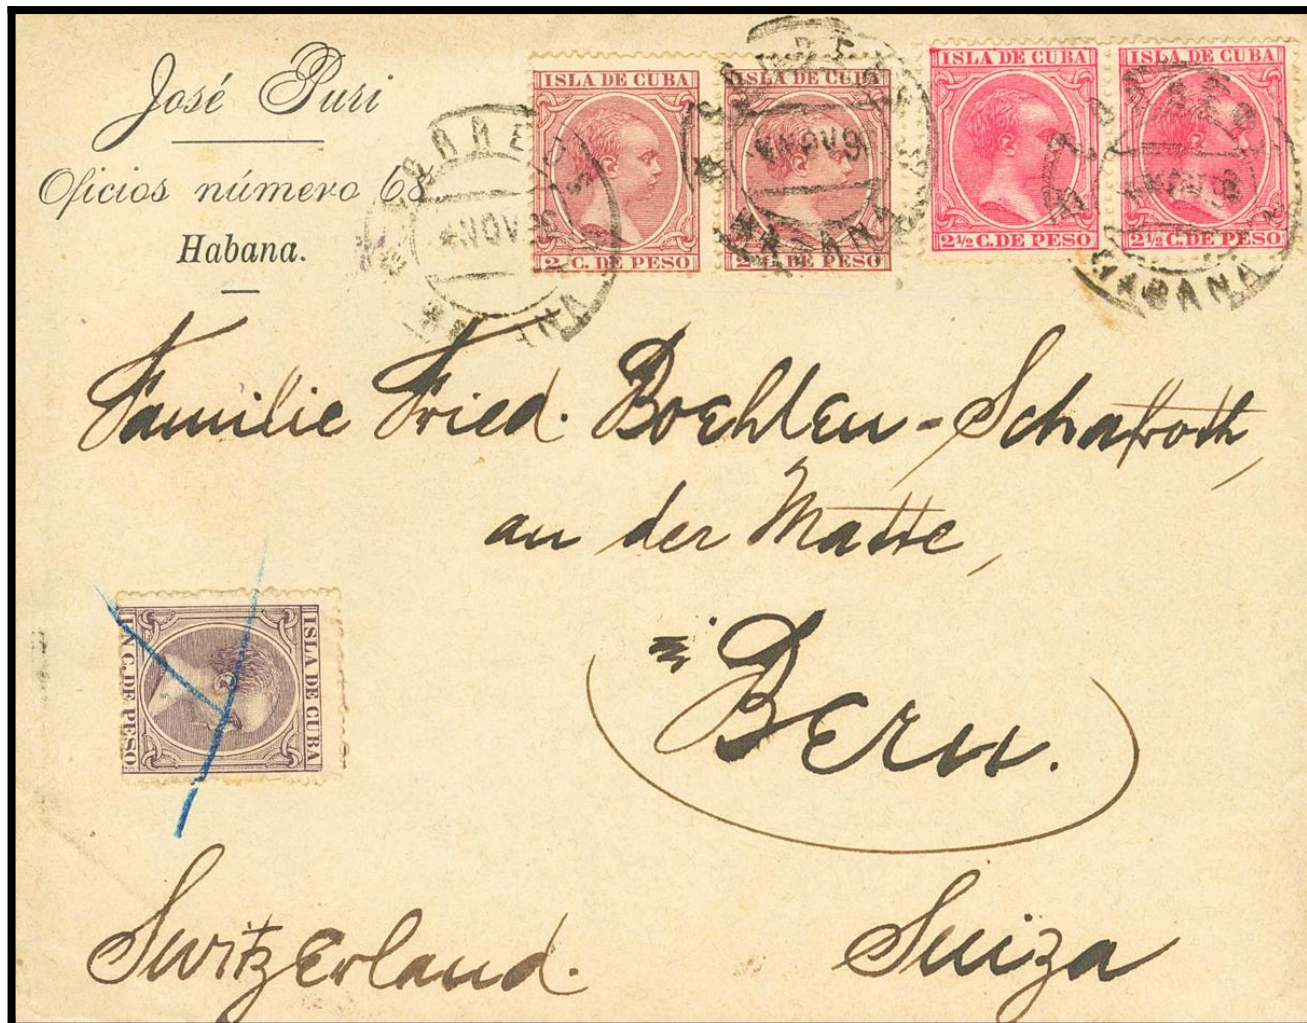 José Puri
Oficios número 68
Habana.
ISLA DE CUBA
2 C. DE PESO
ISLA DE CUBA
C. DE PESO
ISLA DE CUBA
2½ C. DE PESO
ISLA DE CUBA
2½ C. DE PESO
NOV
HABANA
NOV
HABANA
Familie Fried. Boehlen-Schafroth,
an der Matte,
Bern.
ISLA DE CUBA
UN C. DE PESO
Switzerland.
Suiza